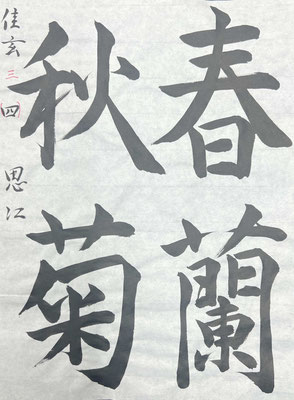 春蘭
秋菊
佳玄 三 四 思江